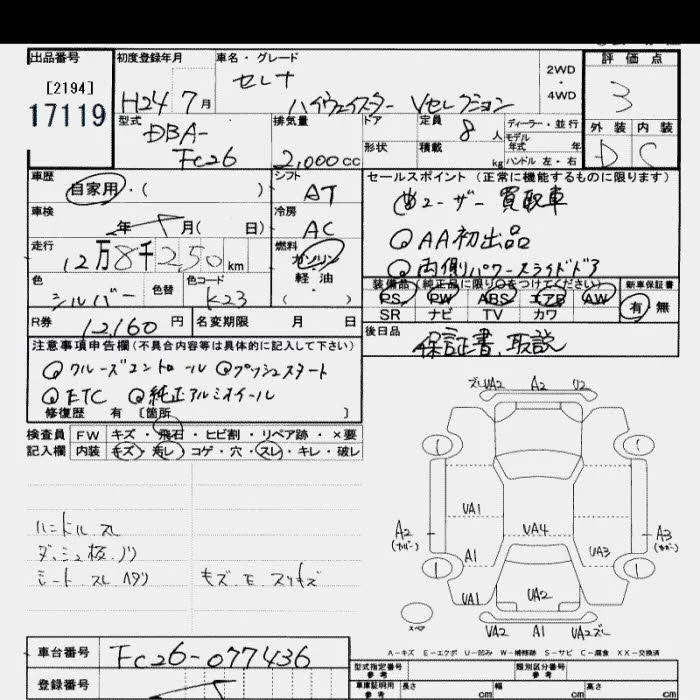 出品番号 初度登録年月 車名・グレード 評価点
[2194] セレナ 2WD
17119 ・ 3
H24 7月 ハイウェイスター Vセレクション 4WD
型式 排気量 ドア 定員 ディーラー・並行 外装 内装
DBA- 8人 モデル
FC26 2,000cc 形状 積載 kg 年式 年 D C
ハンドル 左・右
車歴 シフト セールスポイント (正常に機能するものに限ります)
自家用・( ) AT ユーザー買取車
車検 冷房
年 月( 日) AC AA初出品
走行 燃料
12万8千250km ガソリン 両側パワースライドドア
色 色替 色コード 軽油 装備品(純正品に限り○をつけてください) 新車保証書
シルバー K23 ( ・ ) PS PW ABS エアB AW 有・無
SR ナビ TV カワ
R券 12,160円 名変期限 月 日 後日品
保証書、取説
注意事項申告欄(不具合内容等は具体的に記入して下さい)
クルーズコントロール プッシュスタート
ETC 純正アルミホイール
修復歴 有 [箇所 ]
検査員 FW キズ・飛石・ヒビ割・リペア跡・×要
記入欄 内装 キズ・汚レ・コゲ・穴・スレ・キレ・破レ
ハンドル スレ
ダッシュ板ノリ
シート スレ ヘタリ キズ モ スリキズ
ズレUA2 A2 U2
UA1
A2 UA4 A3
(カバー) A1 UA3 (カバー)
UA1 UA2
スペア UA2 A1 UA2ズレ
A-キズ E-エクボ U-凹み W-補修跡 S-サビ C-腐食 XX-交換済
車台番号 FC26-077436
型式指定番号 参考 類別区分番号 参考
登録番号 車庫証明用 参考 長さ cm 幅 cm 高 cm